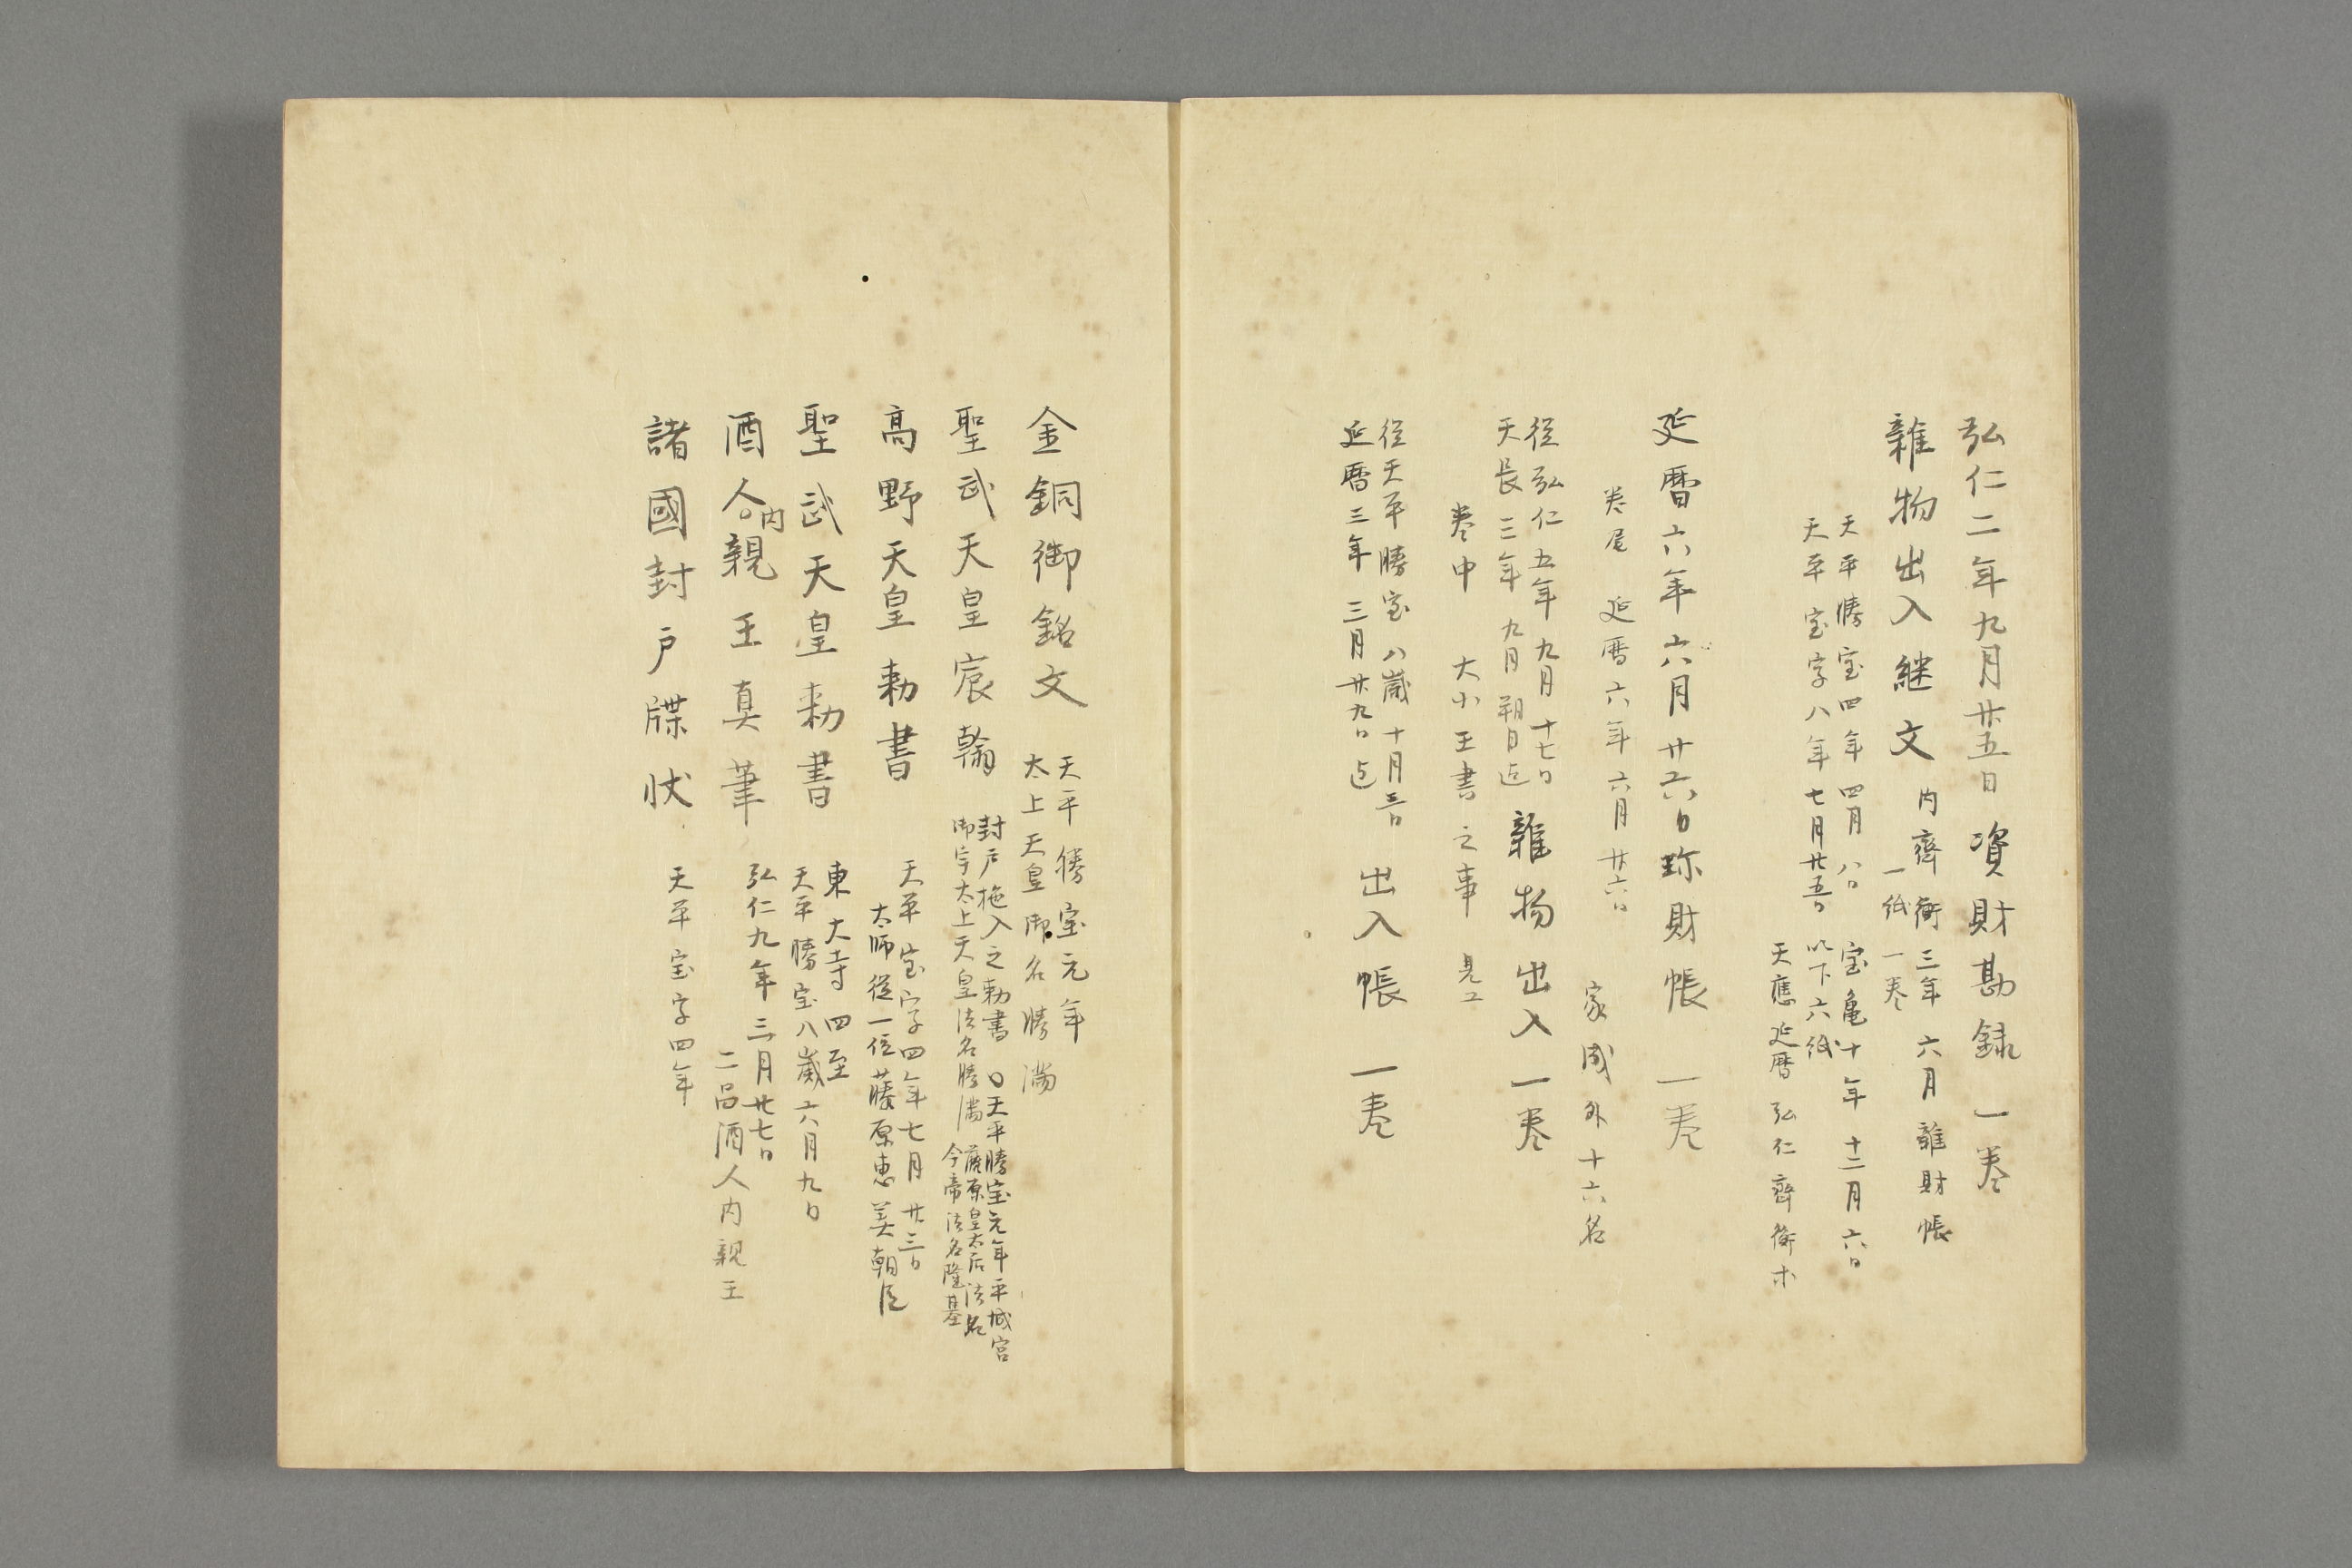 弘仁二年九月廿五日資財勘録 一巻
雜物出入継文
内齊衡三年六月雜財帳
一紙一巻
天平勝宝四年四月八日 宝亀十年十二月六日
天平宝字八年七月廿五日 以下六紙
天應延暦弘仁齊衡木
延暦六年六月廿六日珎財帳 一巻
巻尾 延暦六年六月廿六日
家成外十六名
従弘仁五年九月十七日
天長三年九月朔日迄
雜物出入 一巻
巻中 大小王書之事 見ユ
従天平勝宝八歳十月三日
延暦三年三月廿九日迄
出入帳 一巻
金銅御銘文
天平勝宝元年
太上天皇御名勝満
聖武天皇宸翰
封戸施入之勅書 ○天平勝宝元年平城宮
御宇太上天皇法名勝満 藤原皇太后法名
今帝法名隆基
高野天皇勅書
天平宝字四年七月廿三日
太師従一位藤原恵美朝臣
聖武天皇勅書
東大寺四至
天平勝宝八歳六月九日
酒人○内親王真筆
弘仁九年三月廿七日
二品酒人内親王
諸國封戸牒状 天平宝字四年